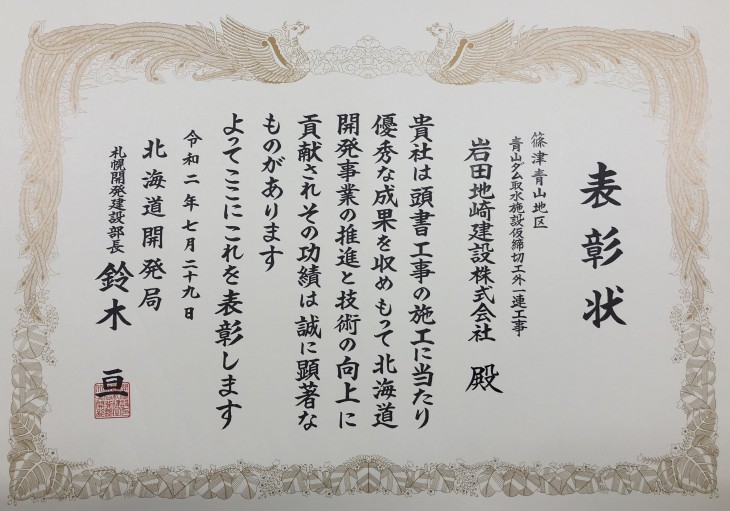 表彰状
篠津青山地区
青山ダム取水施設仮締切工外一連工事
岩田地崎建設株式会社 殿
貴社は頭書工事の施工に当たり
優秀な成果を収め もって北海道
開発事業の推進と技術の向上に
貢献されその功績は誠に顕著な
ものがあります
よってここにこれを表彰します
令和二年七月二十九日
北海道開発局
札幌開発建設部長 鈴木 亘